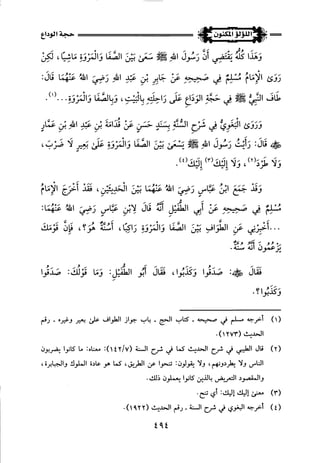 اللؤلؤ المكنون
حجة الوداع
وَهَذَا كُلُّهُ يَقْتَضِي أَنَّ رَسُولَ اللهِ ﷺ سَعَىٰ بَيْنَ الصَّفَا وَالْمَرْوَةِ مَاشِيًا، لَكِنْ
رَوَىٰ الْإِمَامُ مُسْلِمٌ فِي صَحِيحِهِ عَنْ جَابِرِ بْنِ عَبْدِ اللهِ رَضِيَ اللهُ عَنْهُمَا قَالَ:
طَافَ النَّبِيُّ ﷺ فِي حَجَّةِ الْوَدَاعِ عَلَىٰ رَاحِلَتِهِ بِالْبَيْتِ، وَبِالصَّفَا وَالْمَرْوَةِ...(١).
وَرَوَىٰ الْبَغَوِيُّ فِي شَرْحِ السُّنَّةِ بِسَنَدٍ حَسَنٍ عَنْ قُدَامَةَ بْنِ عَبْدِ اللهِ بْنِ عَمَّارٍ
ﷺ قَالَ: رَأَيْتُ رَسُولَ اللهِ ﷺ يَسْعَىٰ بَيْنَ الصَّفَا وَالْمَرْوَةِ عَلَىٰ بَعِيرٍ لَا ضَرْبَ،
وَلَا طَرْدَ(٢)، وَلَا إِلَيْكَ(٣) إِلَيْكَ(٤).
وَقَدْ جَمَعَ ابْنُ عَبَّاسٍ رَضِيَ اللهُ عَنْهُمَا بَيْنَ الْحَدِيثَيْنِ، فَقَدْ أَخْرَجَ الْإِمَامُ
مُسْلِمٌ فِي صَحِيحِهِ عَنْ أَبِي الطُّفَيْلِ أَنَّهُ قَالَ لِابْنِ عَبَّاسٍ رَضِيَ اللهُ عَنْهُمَا:
...أَخْبِرْنِي عَنِ الطَّوَافِ بَيْنَ الصَّفَا وَالْمَرْوَةِ رَاكِبًا، أَسُنَّةٌ هُوَ؟، فَإِنَّ قَوْمَكَ
يَزْعُمُونَ أَنَّهُ سُنَّةٌ.
فَقَالَ ﷺ: صَدَقُوا وَكَذَبُوا، فَقَالَ أَبُو الطُّفَيْلِ: وَمَا قَوْلُكَ: صَدَقُوا
وَكَذَبُوا؟.
(١) أخرجه مسلم في صحيحه ـ كتاب الحج ـ باب جواز الطواف علىٰ بعير وغيره ـ رقم
الحديث (١٢٧٣)
(٢) قال الطيبي في شرح الحديث كما في شرح السنة (١٤٢/٧): معناه: ما كانوا يضربون
الناس ولا يطردونهم، ولا يقولون: تنحوا عن الطريق، كما هو عادة الملوك والجبابرة،
والمقصود التعريض بالذين كانوا يعملون ذلك.
(٣) معنىٰ إليك إليك: أي تنح.
(٤) أخرجه البغوي في شرح السنة ـ رقم الحديث (١٩٢٢).
٤٩٤